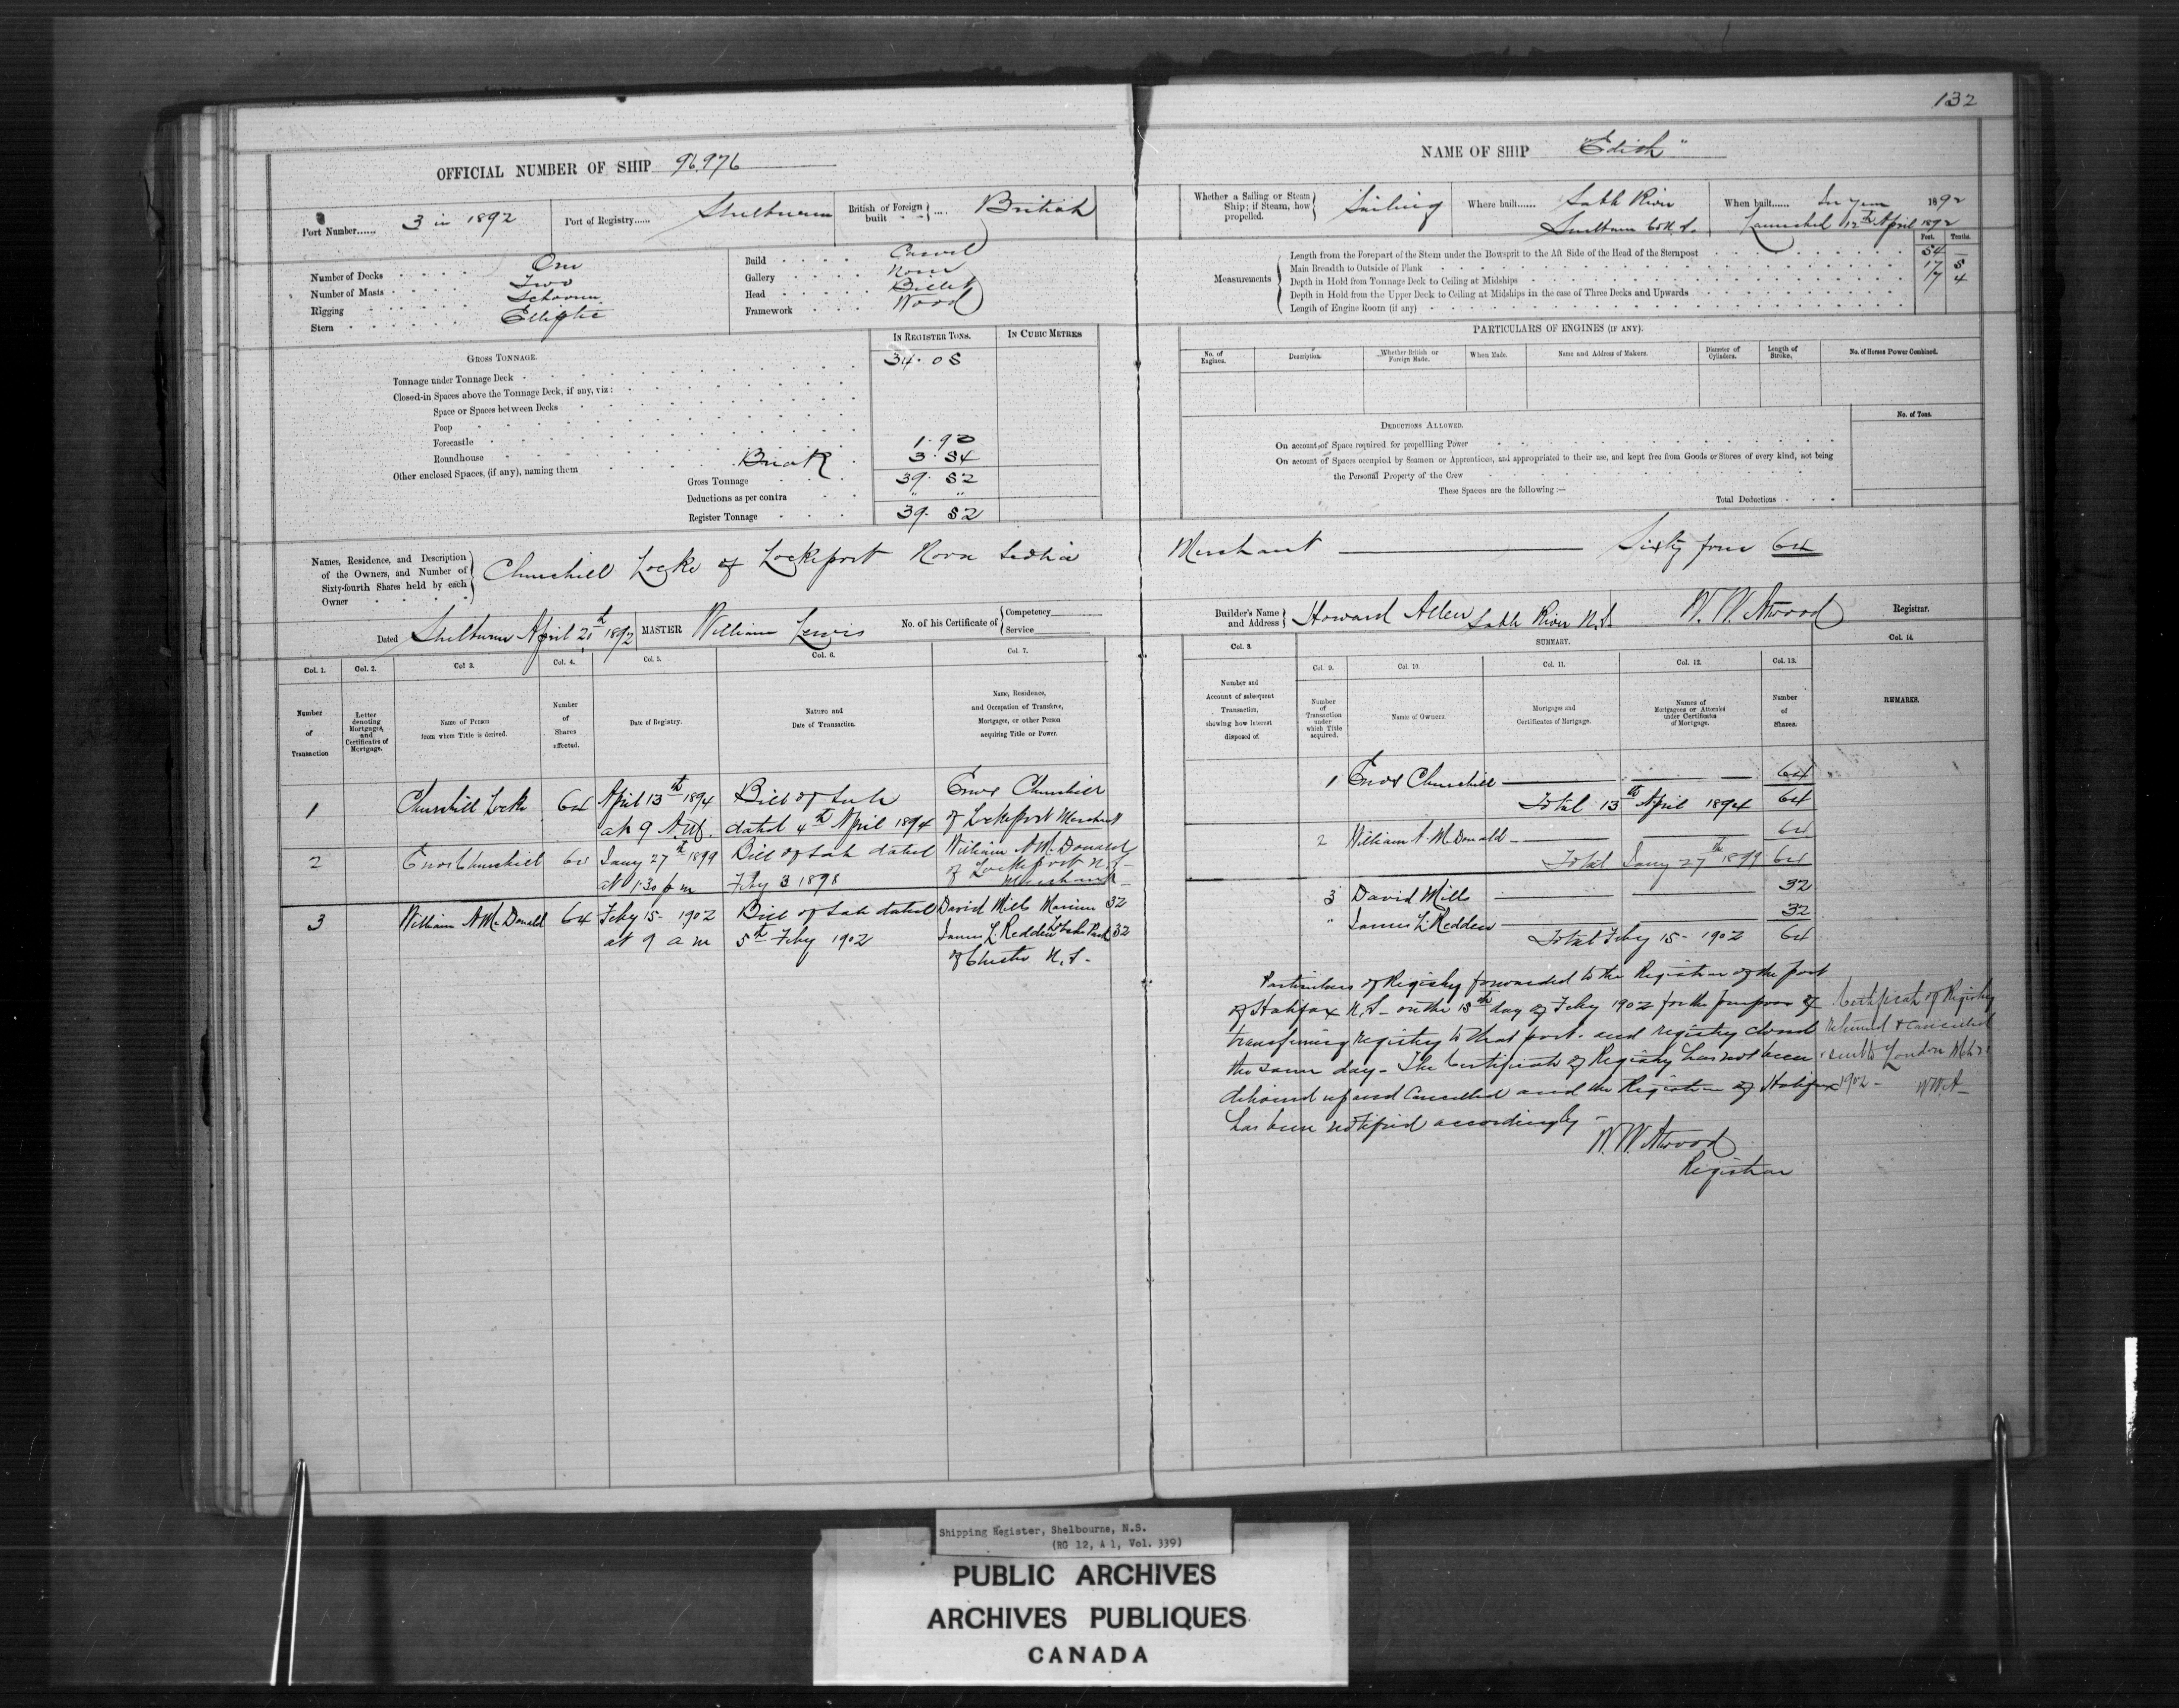 132
OFFICIAL NUMBER OF SHIP 96,976
NAME OF SHIP "Edith"
Port Number...... 3 in 1892
Port of Registry...... Shelburne
British or Foreign built .... British
Whether a Sailing or Steam Ship; if Steam, how propelled. Sailing
Where built...... Sable River
Shelburne Co N.S.
When built...... In year 1892
Launched 12th April 1892
Number of Decks One
Number of Masts Two
Rigging Schooner
Stern Elliptic
Build Carvel
Gallery None
Head Billet
Framework Wood
Measurements
Feet. Tenths.
Length from the Forepart of the Stem under the Bowsprit to the Aft Side of the Head of the Sternpost 54 —
Main Breadth to Outside of Plank 17 5
Depth in Hold from Tonnage Deck to Ceiling at Midships 7 4
Depth in Hold from the Upper Deck to Ceiling at Midships in the case of Three Decks and Upwards
Length of Engine Room (if any)
GROSS TONNAGE.
IN REGISTER TONS.
IN CUBIC METRES
Tonnage under Tonnage Deck 34.08
Closed-in Spaces above the Tonnage Deck, if any, viz:
Space or Spaces between Decks
Poop
Forecastle
Roundhouse 1.90
Other enclosed Spaces, (if any), naming them Break 3.54
Gross Tonnage 39.52
Deductions as per contra " "
Register Tonnage 39.52
PARTICULARS OF ENGINES (IF ANY).
No. of Engines.
Description.
Whether British or Foreign Made.
When Made.
Name and Address of Makers.
Diameter of Cylinders.
Length of Stroke.
No. of Horses Power Combined.
DEDUCTIONS ALLOWED.
No. of Tons.
On account of Space required for propelling Power
On account of Spaces occupied by Seamen or Apprentices, and appropriated to their use, and kept free from Goods or Stores of every kind, not being
the Personal Property of the Crew
These Spaces are the following:—
Total Deductions
Names, Residence, and Description of the Owners, and Number of Sixty-fourth Shares held by each Owner
Churchill Locke of Lockeport Nova Scotia Merchant Sixty four 64
Dated Shelburne April 21st 1892
MASTER William Lewis
No. of his Certificate of Competency Service
Builder's Name and Address Howard Allen Sable River N.S.
W. W. Atwood Registrar.
Col. 1. Col. 2. Col. 3. Col. 4. Col. 5. Col. 6. Col. 7.
Number of Transaction
Letter denoting Mortgages, and Certificates of Mortgage.
Name of Person from whom Title is derived.
Number of Shares affected.
Date of Registry.
Nature and Date of Transaction.
Name, Residence, and Occupation of Transferee, Mortgagee, or other Person acquiring Title or Power.
Col. 8.
Number and Account of subsequent Transaction, showing how Interest disposed of.
SUMMARY.
Col. 9. Col. 10. Col. 11. Col. 12. Col. 13. Col. 14.
Number of Transaction under which Title acquired.
Names of Owners.
Mortgages and Certificates of Mortgage.
Names of Mortgagees or Attornies under Certificates of Mortgage.
Number of Shares.
REMARKS.
1 Churchill Locke 64 April 13th 1894 Bill of Sale Enos Churchill
at 9 A.M. dated 4th April 1894 of Lockeport Merchant
2 Enos Churchill 64 Jany 27th 1899 Bill of Sale dated William A McDonald
at 1.30 p m Feby 3 1898 of Lockeport N.S.
Merchant
3 William A McDonald 64 Feby 15 - 1902 Bill of Sale dated David Mills Mariner 32
at 9 a m 5th Feby 1902 James L. Redden 32
of Chester N.S.
1 Enos Churchill 64
Total 13th April 1894 64
2 William A. McDonald 64
Total Jany 27th 1899 64
3 David Mills 32
" James L Redden 32
Total Feby 15 - 1902 64
Particulars of Registry forwarded to the Registrar of the port
of Halifax N.S. on the 15th day of Feby 1902 for the purpose of
transferring registry to that port. and registry closed
the same day - The Certificate of Registry has not been
delivered up and Cancelled and the Registrar of Halifax
has been notified accordingly -
W. W. Atwood
Registrar
Certificate of Registry
returned & cancelled
sent to London
1902 - W.W.A
Shipping Register, Shelbourne, N.S.
(RG 12, A 1, Vol. 339)
PUBLIC ARCHIVES
ARCHIVES PUBLIQUES
CANADA